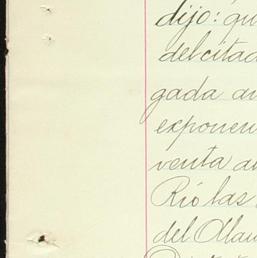 dijo: qu
del citad
gada an
exponen
venta an
Rio las
del Mau